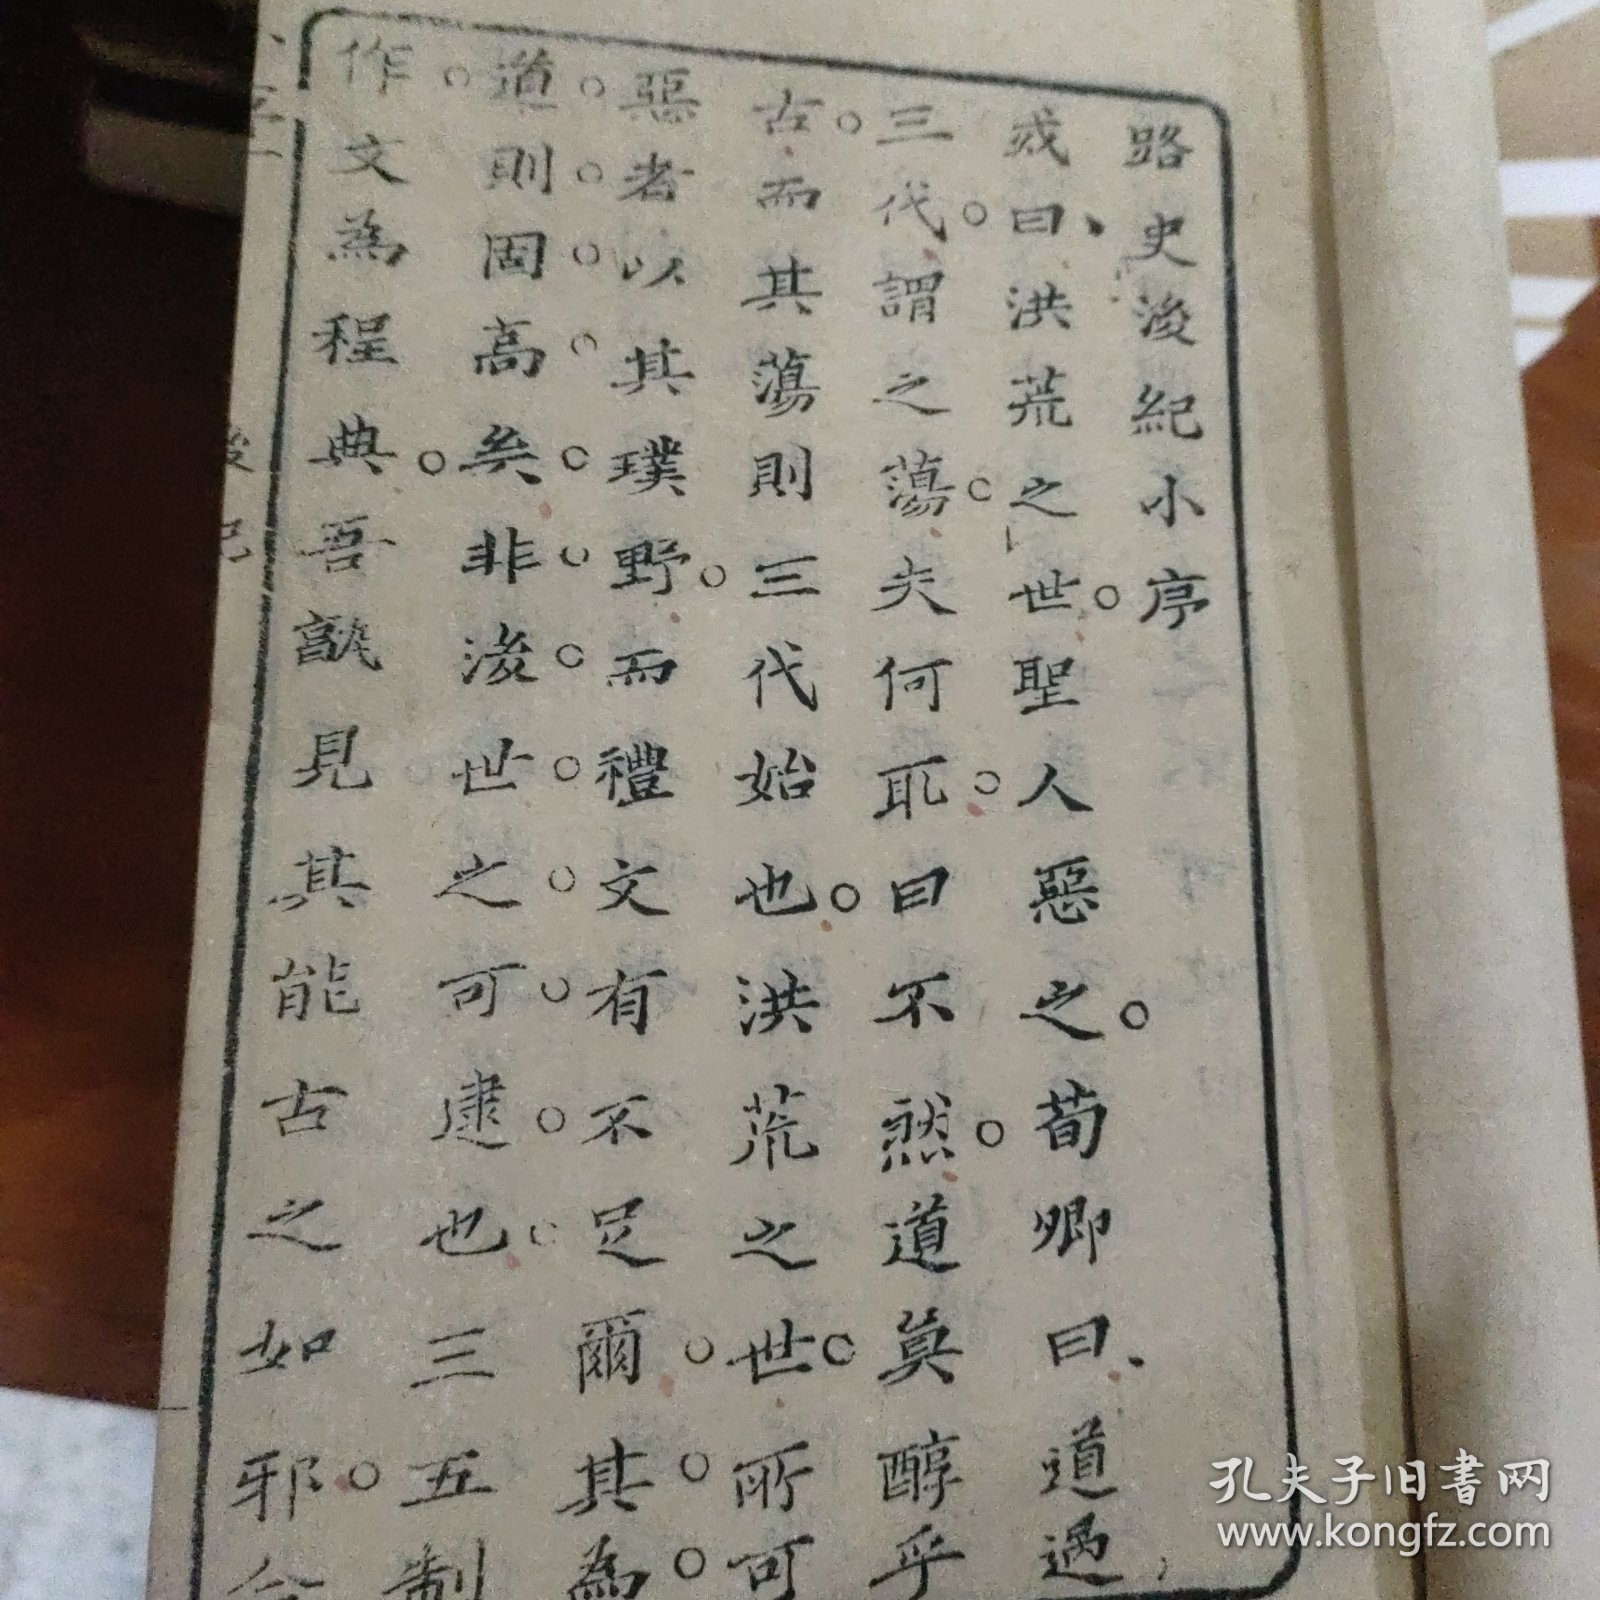 路史後紀小序
或曰、洪荒之世。聖人惡之。荀卿曰、道過
三代。謂之蕩。夫何耶。曰不然。道莫醇乎
古。而其蕩則三代始也。洪荒之世。所可
惡者以其璞野。而禮文有不足爾。其。為。
道。則。固。高。矣。非。後。世。之。可。逮。也。三五制
作。文為程典。吾孰見其能古之如邪。今
孔夫子旧書网
www.kongfz.com